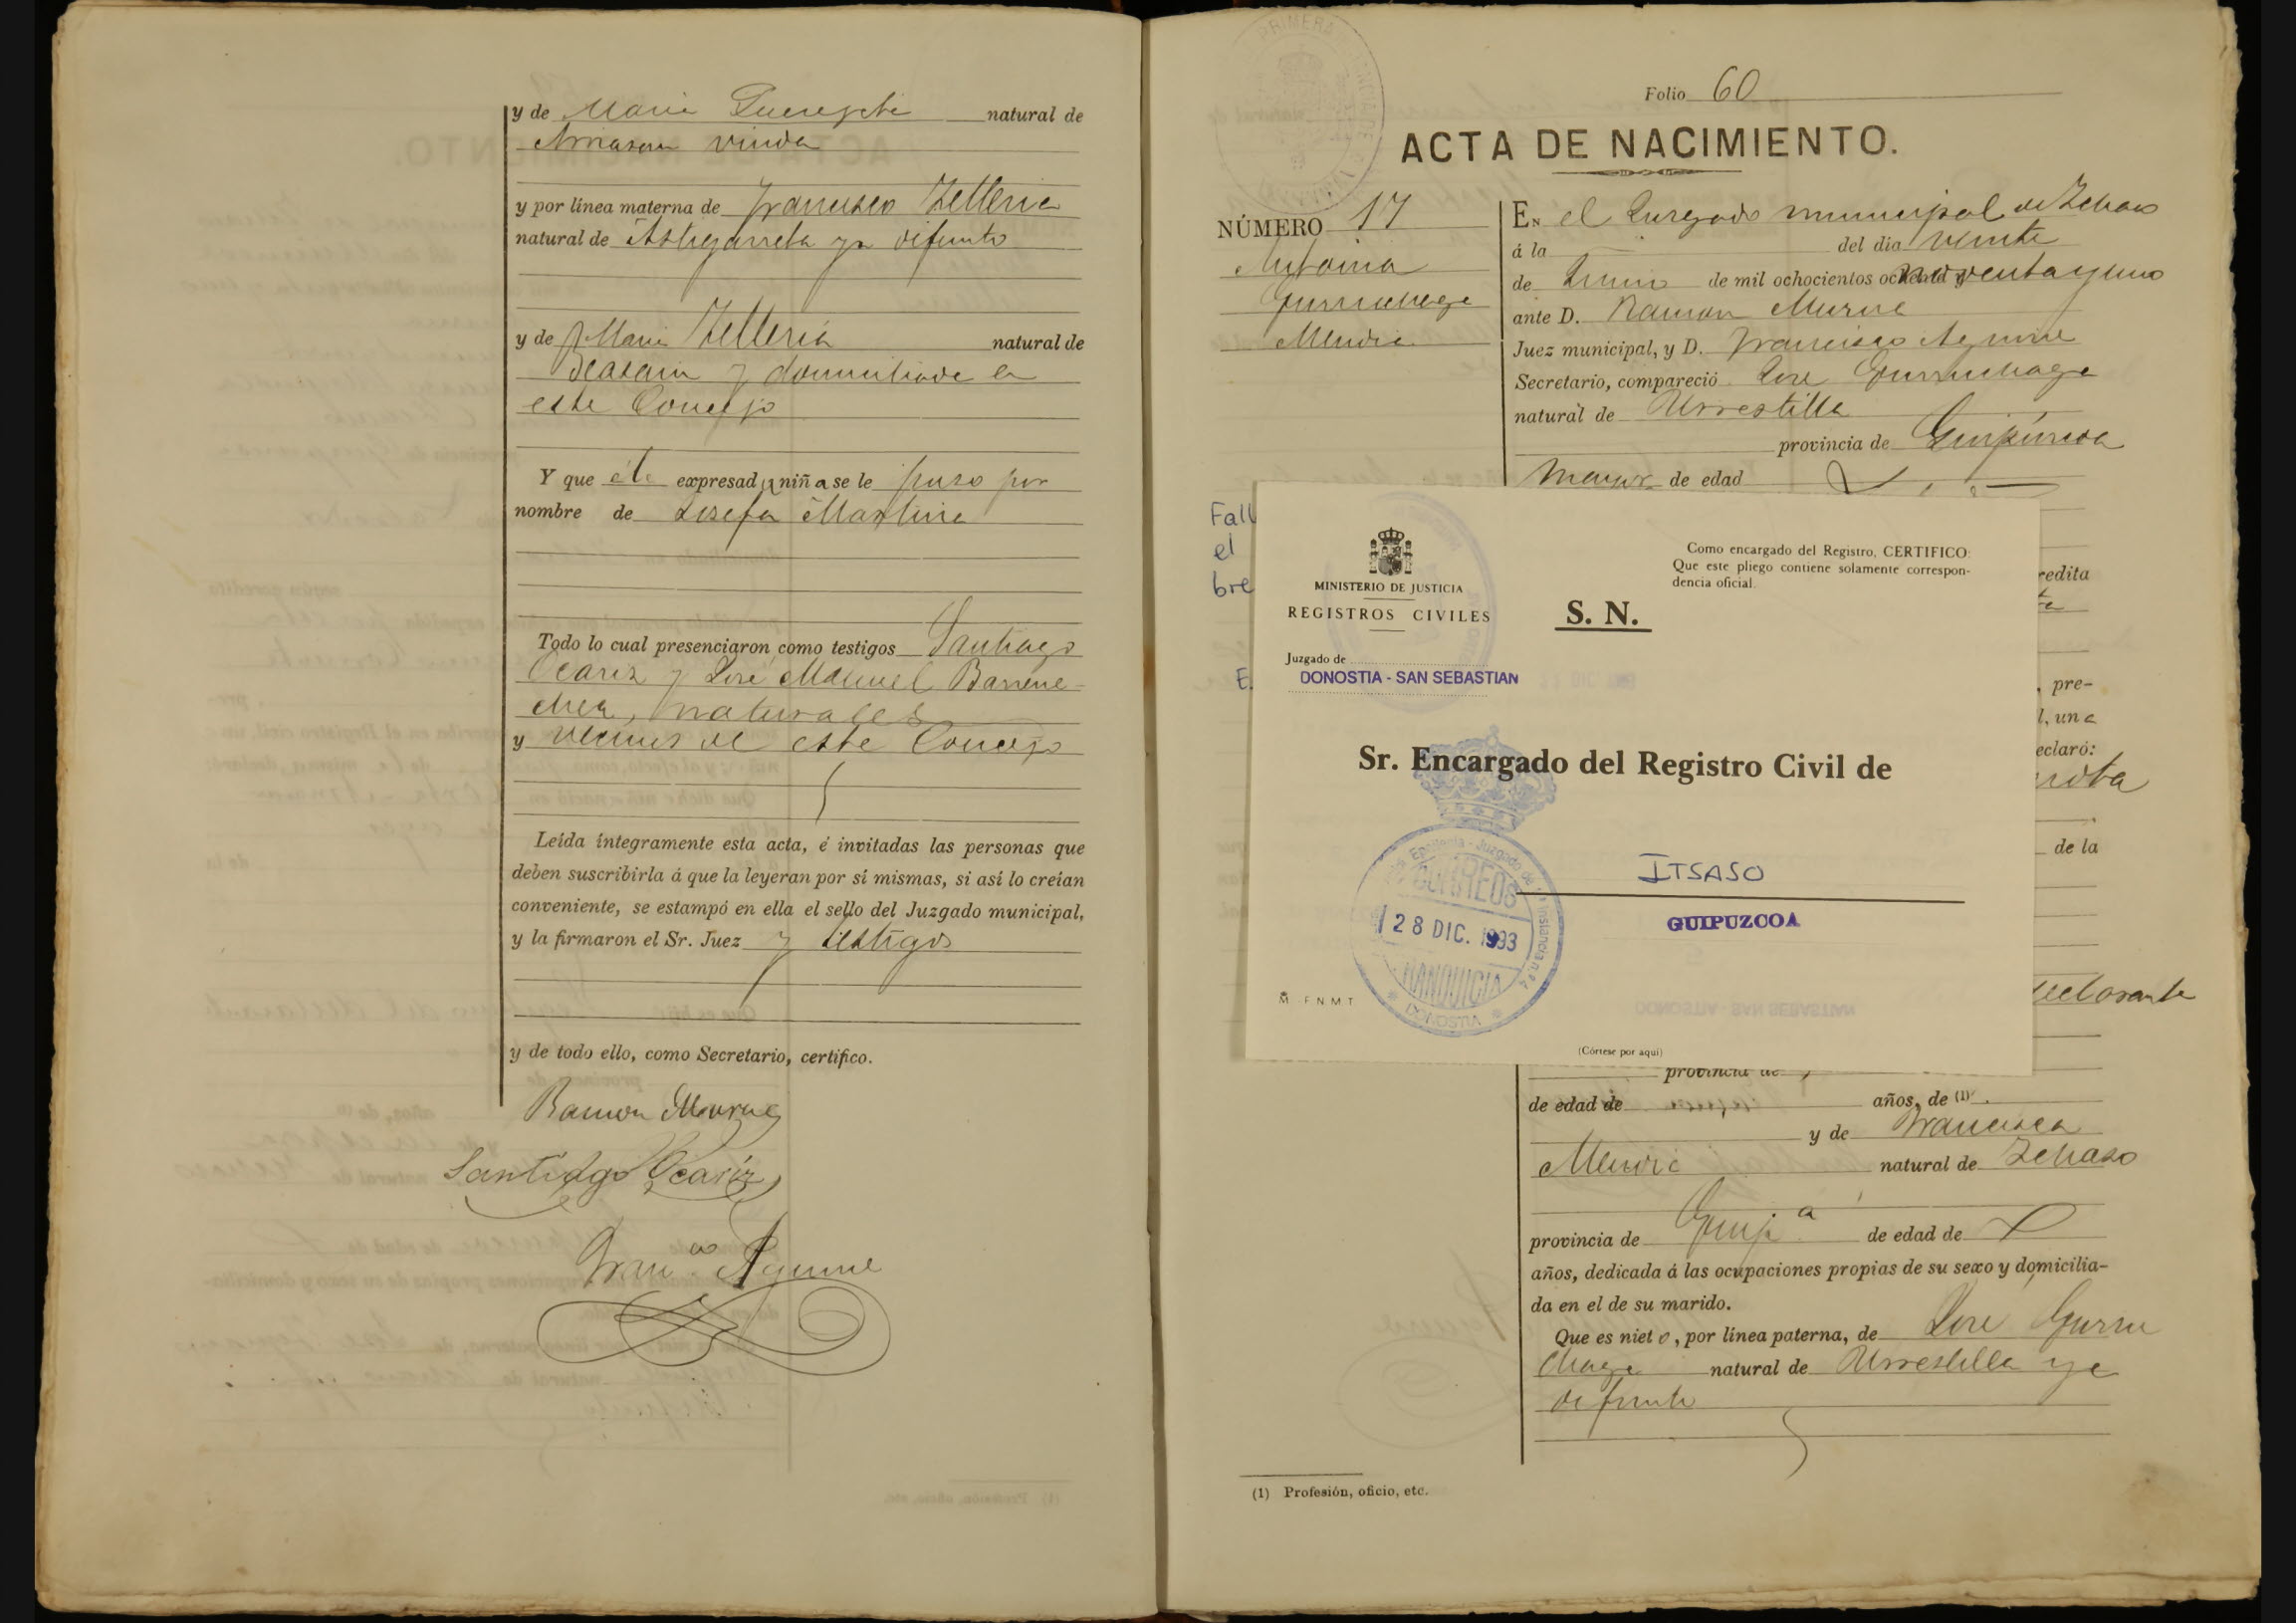 y de Maria natural de
viuda
y por línea materna de Francisco Telleria
natural de Astigarreta ya difunto
y de Maria Telleria natural de
Beasain y domiciliada en
este Concejo
Y que á la expresada niña se le puso por
nombre de Josefa Martina
Todo lo cual presenciaron como testigos Santiago
Ocariz y José Manuel Barrene-
chea, naturales
y vecinos de este Concejo
Leída íntegramente esta acta, é invitadas las personas que
deben suscribirla á que la leyeran por sí mismas, si así lo creían
conveniente, se estampó en ella el sello del Juzgado municipal,
y la firmaron el Sr. Juez y testigos
y de todo ello, como Secretario, certifico.
Ramon Murua
Santiago Ocariz
Fran.co Aguirre
Folio 60
ACTA DE NACIMIENTO.
NÚMERO 17
Antonia
Gurruchaga
Mendia
En el Juzgado municipal de Ichaso
á la del dia veinte
de Junio de mil ochocientos noventa y uno
ante D. Ramon Murua
Juez municipal, y D. Francisco Aguirre
Secretario, compareció José Gurruchaga
natural de Urrestilla
provincia de Guipúzcoa
mayor de edad
Fall
el
bre
E.
MINISTERIO DE JUSTICIA
REGISTROS CIVILES
Juzgado de
DONOSTIA - SAN SEBASTIAN
Como encargado del Registro, CERTIFICO:
Que este pliego contiene solamente correspon-
dencia oficial.
S. N.
Sr. Encargado del Registro Civil de
ITSASO
GUIPUZCOA
CORREOS
28 DIC. 1993
FRANQUICIA
DONOSTIA
F N M T
(Córtese por aquí)
redita
, pre-
l, una
eclaró:
de la
declarante
provincia de
de edad de años, de (1)
y de Francisca
Mendia natural de Ichaso
provincia de Guip.a de edad de
años, dedicada á las ocupaciones propias de su sexo y domicilia-
da en el de su marido.
Que es nieto, por línea paterna, de José Gurru
chaga natural de Urrestilla ya
difunto
(1) Profesión, oficio, etc.